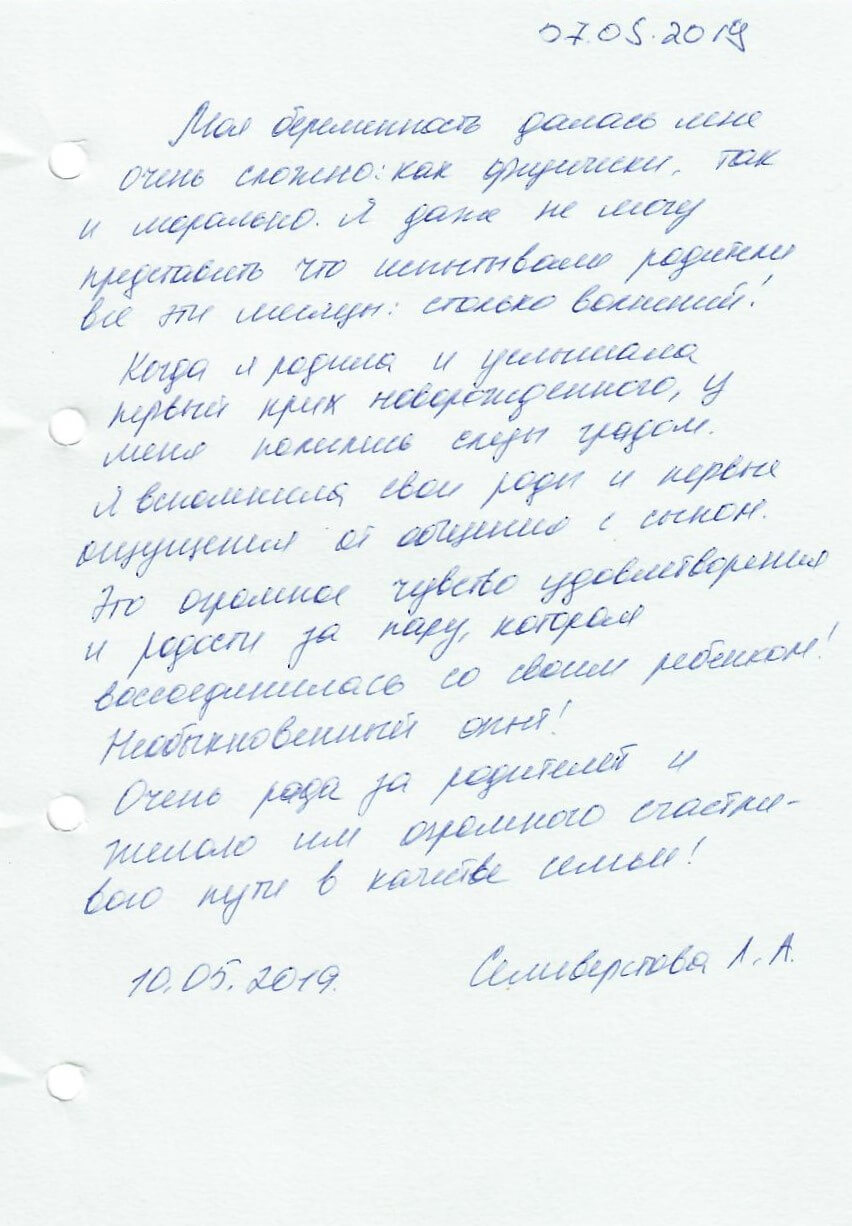 07.05.2019
Моя беременность далась мне
очень сложно: как физически, так
и морально. Я даже не могу
представить что испытывали родители
все эти месяцы: столько волнений!
Когда я родила и услышала
первый крик новорожденного, у
меня полились слезы градом.
Я вспомнила свои роды и первые
ощущения от общения с сыном.
Это огромное чувство удовлетворения
и радости за пару, которая
воссоединилась со своим ребенком!
Необыкновенный опыт!
Очень рада за родителей и
желаю им огромного счастли-
вого пути в качестве семьи!
10.05.2019. Селиверстова Л.А.